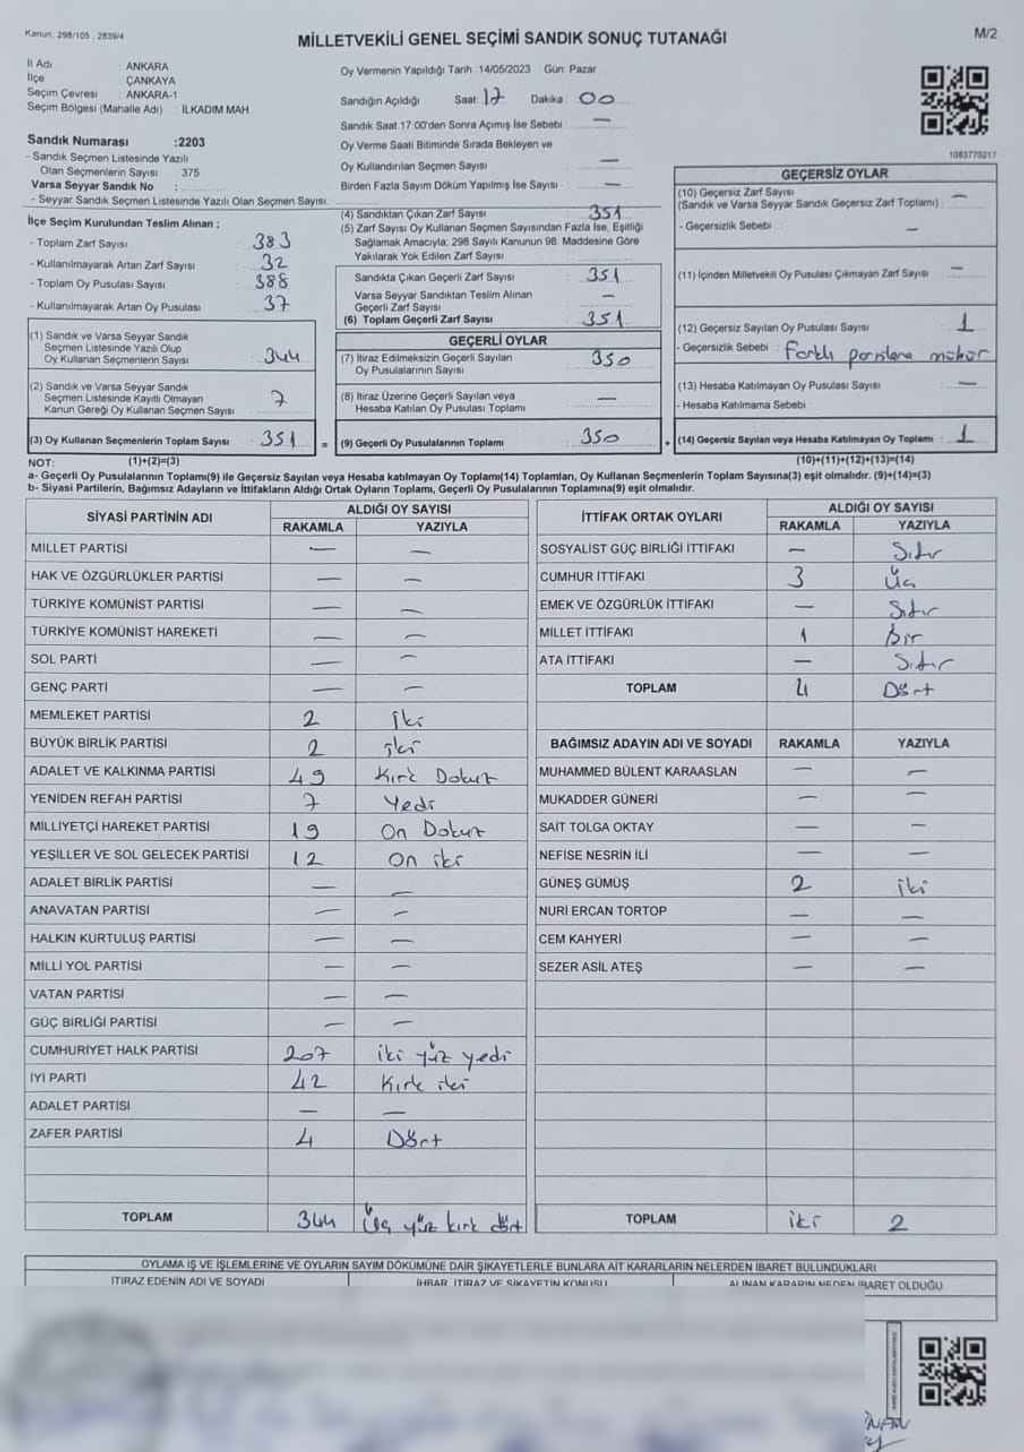 Kanun: 298/105 , 2839/4
MİLLETVEKİLİ GENEL SEÇİMİ SANDIK SONUÇ TUTANAĞI
M/2
İl Adı : ANKARA
İlçe : ÇANKAYA
Seçim Çevresi : ANKARA-1
Seçim Bölgesi (Mahalle Adı) : İLKADIM MAH.
Oy Vermenin Yapıldığı Tarih :14/05/2023 Gün: Pazar
Sandığın Açıldığı Saat: 17 Dakika: 00
Sandık Saat 17:00'den Sonra Açımış İse Sebebi : —
Oy Verme Saati Bitiminde Sırada Bekleyen ve
Oy Kullandırılan Seçmen Sayısı : —
Birden Fazla Sayım Döküm Yapılmış İse Sayısı : —
1083770217
Sandık Numarası :2203
- Sandık Seçmen Listesinde Yazılı
Olan Seçmenlerin Sayısı 375
Varsa Seyyar Sandık No :
- Seyyar Sandık Seçmen Listesinde Yazılı Olan Seçmen Sayısı:
İlçe Seçim Kurulundan Teslim Alınan :
- Toplam Zarf Sayısı : 383
- Kullanılmayarak Artan Zarf Sayısı : 32
- Toplam Oy Pusulası Sayısı : 388
- Kullanılmayarak Artan Oy Pusulası : 37
(1) Sandık ve Varsa Seyyar Sandık
Seçmen Listesinde Yazılı Olup
Oy Kullanan Seçmenlerin Sayısı : 344
(2) Sandık ve Varsa Seyyar Sandık
Seçmen Listesinde Kayıtlı Olmayan
Kanun Gereği Oy Kullanan Seçmen Sayısı : 7
(3) Oy Kullanan Seçmenlerin Toplam Sayısı : 351 =
(1)+(2)=(3)
(4) Sandıktan Çıkan Zarf Sayısı : 351
(5) Zarf Sayısı Oy Kullanan Seçmen Sayısından Fazla İse, Eşitliği
Sağlamak Amacıyla; 298 Sayılı Kanunun 98. Maddesine Göre
Yakılarak Yok Edilen Zarf Sayısı :
Sandıkta Çıkan Geçerli Zarf Sayısı : 351
Varsa Seyyar Sandıktan Teslim Alınan
Geçerli Zarf Sayısı : —
(6) Toplam Geçerli Zarf Sayısı : 351
GEÇERLİ OYLAR
(7) İtiraz Edilmeksizin Geçerli Sayılan
Oy Pusulalarının Sayısı : 350
(8) İtiraz Üzerine Geçerli Sayılan veya
Hesaba Katılan Oy Pusulası Toplamı : —
(9) Geçerli Oy Pusulalarının Toplamı : 350 +
GEÇERSİZ OYLAR
(10) Geçersiz Zarf Sayısı
(Sandık ve Varsa Seyyar Sandık Geçersiz Zarf Toplamı) : —
- Geçersizlik Sebebi : —
(11) İçinden Milletvekili Oy Pusulası Çıkmayan Zarf Sayısı : —
(12) Geçersiz Sayılan Oy Pusulası Sayısı : 1
- Geçersizlik Sebebi : Farklı partilere mühür
(13) Hesaba Katılmayan Oy Pusulası Sayısı : —
- Hesaba Katılmama Sebebi :
(14) Geçersiz Sayılan veya Hesaba Katılmayan Oy Toplamı : 1
(10)+(11)+(12)+(13)=(14)
NOT:
a- Geçerli Oy Pusulalarının Toplamı(9) ile Geçersiz Sayılan veya Hesaba katılmayan Oy Toplamı(14) Toplamları, Oy Kullanan Seçmenlerin Toplam Sayısına(3) eşit olmalıdır. (9)+(14)=(3)
b- Siyasi Partilerin, Bağımsız Adayların ve İttifakların Aldığı Ortak Oyların Toplamı, Geçerli Oy Pusulalarının Toplamına(9) eşit olmalıdır.
SİYASİ PARTİNİN ADI ALDIĞI OY SAYISI
RAKAMLA YAZIYLA
MİLLET PARTİSİ — —
HAK VE ÖZGÜRLÜKLER PARTİSİ — —
TÜRKİYE KOMÜNİST PARTİSİ — —
TÜRKİYE KOMÜNİST HAREKETİ — —
SOL PARTİ — —
GENÇ PARTİ — —
MEMLEKET PARTİSİ 2 iki
BÜYÜK BİRLİK PARTİSİ 2 iki
ADALET VE KALKINMA PARTİSİ 49 Kırk Dokuz
YENİDEN REFAH PARTİSİ 7 Yedi
MİLLİYETÇİ HAREKET PARTİSİ 19 On Dokuz
YEŞİLLER VE SOL GELECEK PARTİSİ 12 On iki
ADALET BİRLİK PARTİSİ — —
ANAVATAN PARTİSİ — —
HALKIN KURTULUŞ PARTİSİ — —
MİLLİ YOL PARTİSİ — —
VATAN PARTİSİ — —
GÜÇ BİRLİĞİ PARTİSİ — —
CUMHURİYET HALK PARTİSİ 207 iki yüz yedi
İYİ PARTİ 42 Kırk iki
ADALET PARTİSİ — —
ZAFER PARTİSİ 4 Dört
TOPLAM 344 Üç yüz kırk dört
İTTİFAK ORTAK OYLARI ALDIĞI OY SAYISI
RAKAMLA YAZIYLA
SOSYALİST GÜÇ BİRLİĞİ İTTİFAKI — Sıfır
CUMHUR İTTİFAKI 3 Üç
EMEK VE ÖZGÜRLÜK İTTİFAKI — Sıfır
MİLLET İTTİFAKI 1 Bir
ATA İTTİFAKI — Sıfır
TOPLAM 4 Dört
BAĞIMSIZ ADAYIN ADI VE SOYADI RAKAMLA YAZIYLA
MUHAMMED BÜLENT KARAASLAN — —
MUKADDER GÜNERİ — —
SAİT TOLGA OKTAY — —
NEFİSE NESRİN İLİ — —
GÜNEŞ GÜMÜŞ 2 iki
NURİ ERCAN TORTOP — —
CEM KAHYERİ — —
SEZER ASİL ATEŞ — —
TOPLAM iki 2
OYLAMA İŞ VE İŞLEMLERİNE VE OYLARIN SAYIM DÖKÜMÜNE DAİR ŞİKAYETLERLE BUNLARA AİT KARARLARIN NELERDEN İBARET BULUNDUKLARI
İTİRAZ EDENİN ADI VE SOYADI İHBAR, İTİRAZ VE ŞİKAYETİN KONUSU ALINAN KARARIN NEDEN İBARET OLDUĞU